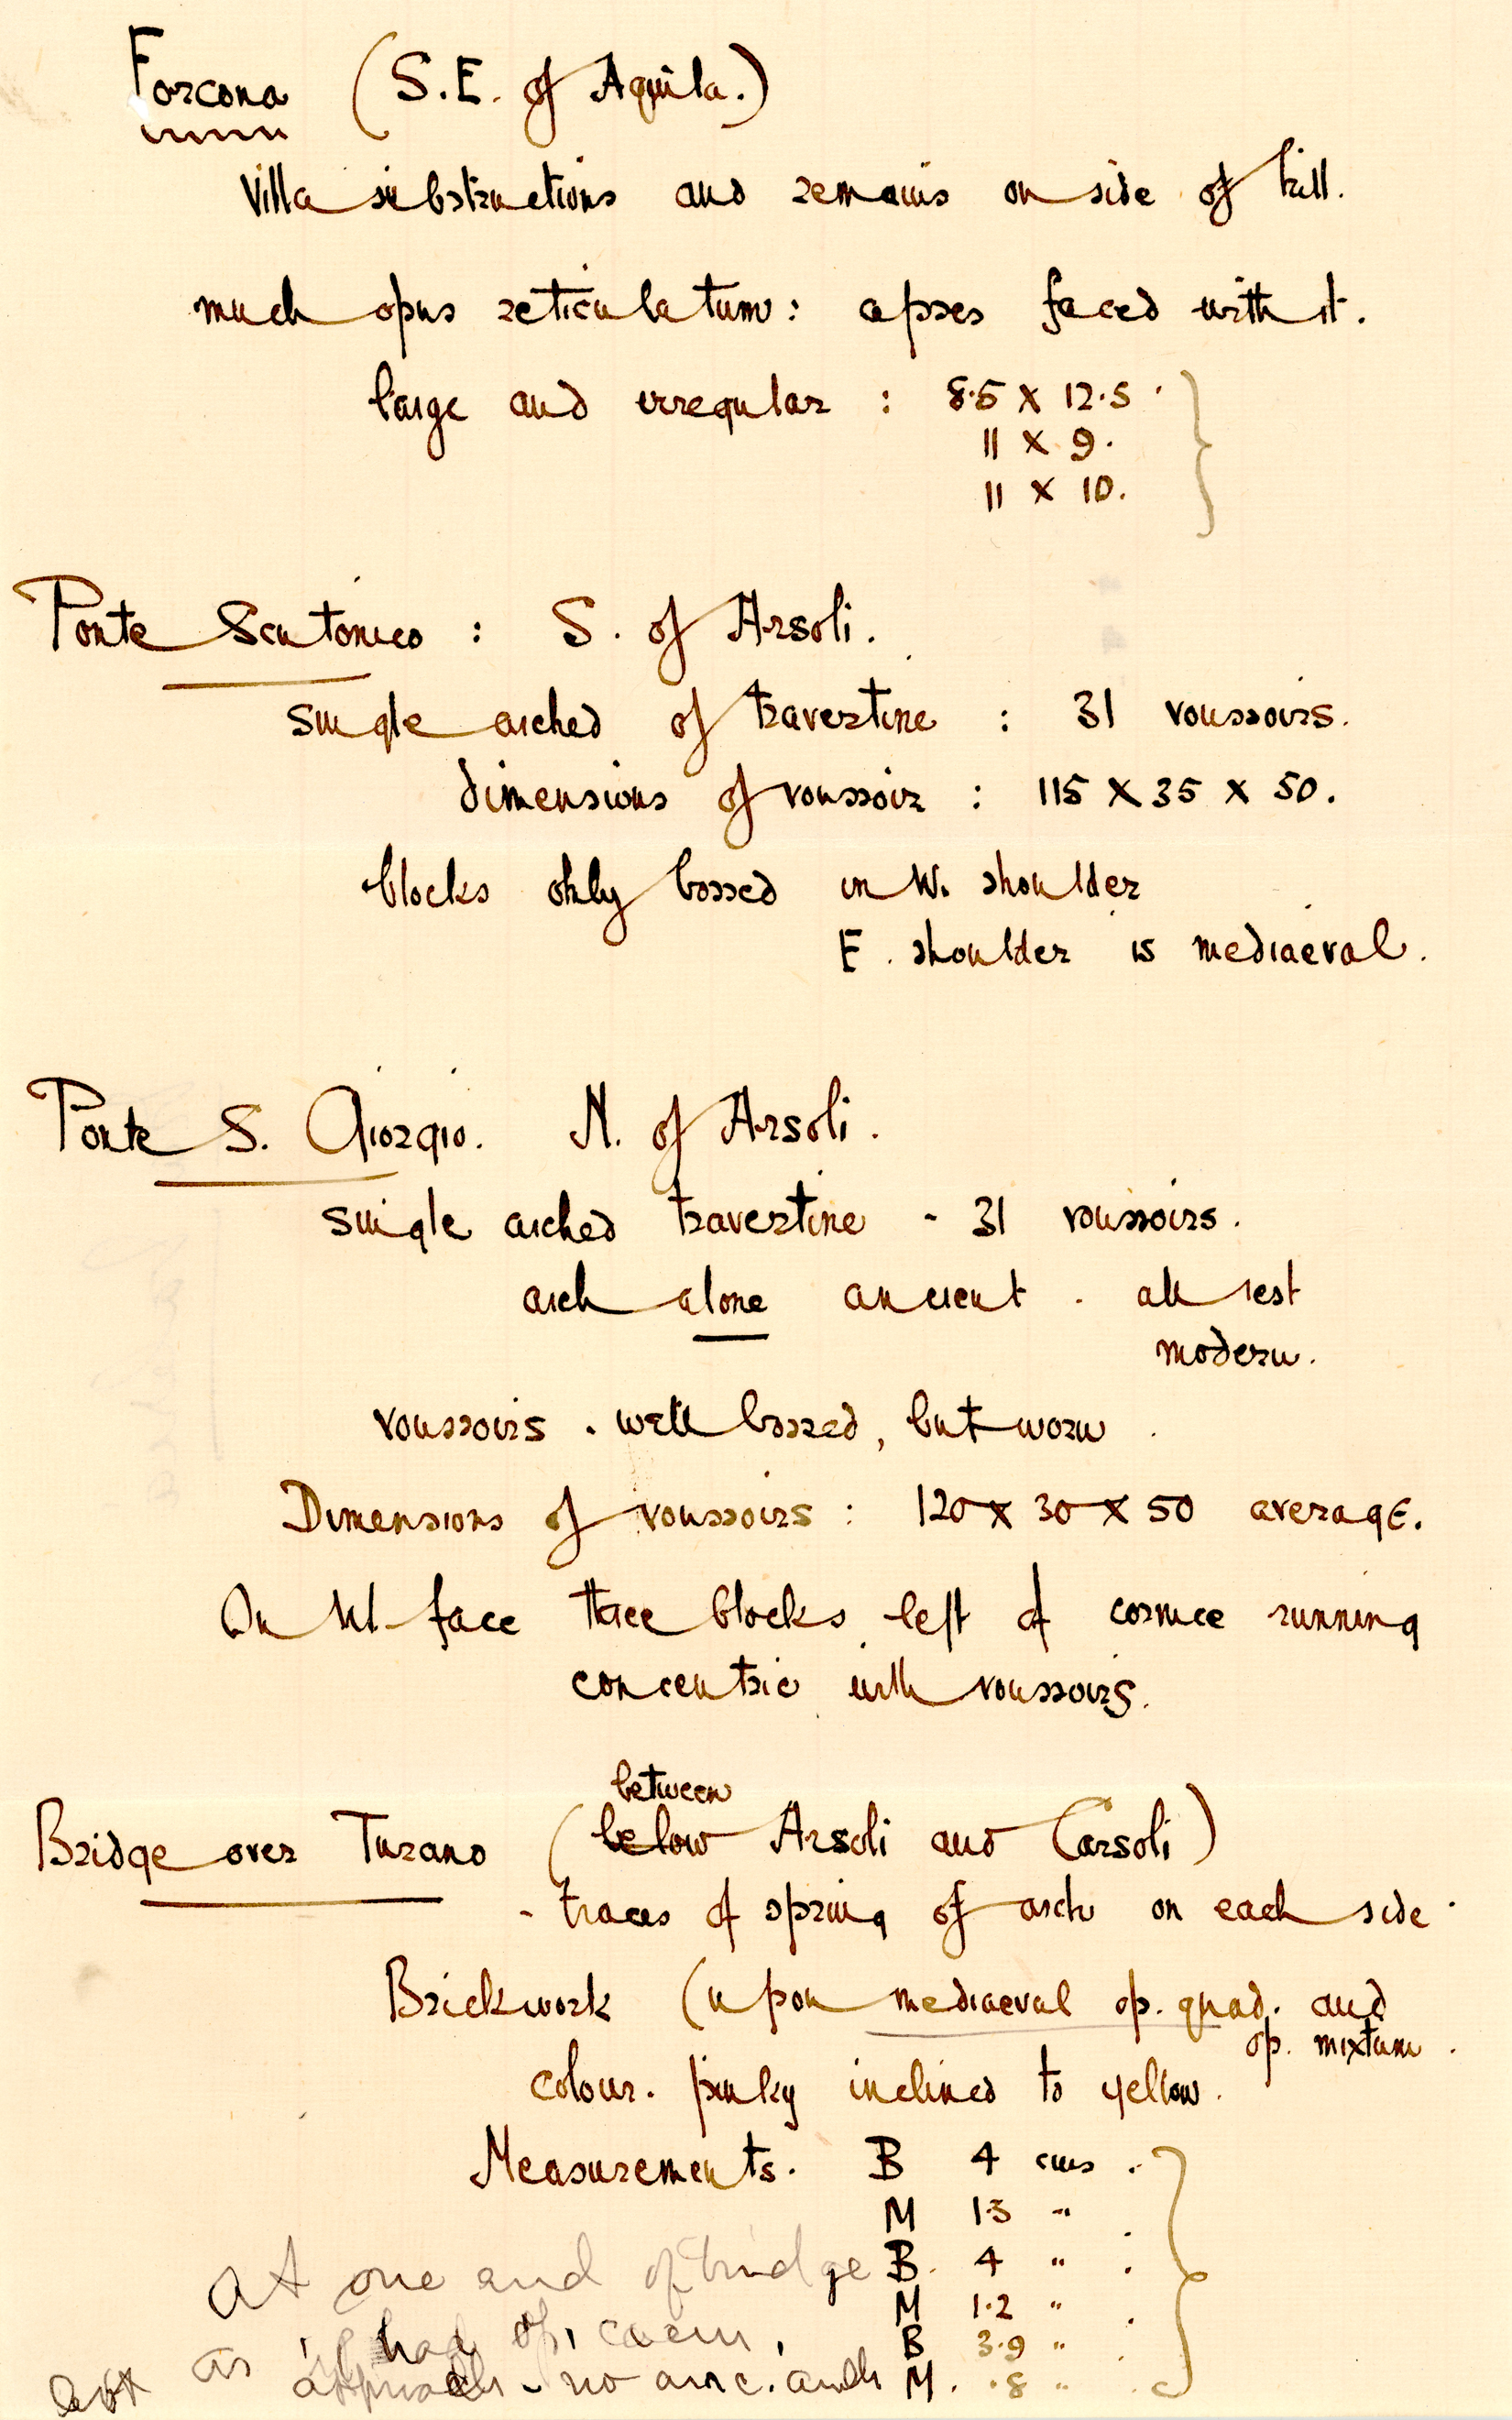 Forcona (S.E. of Aquila.)
Villa substructions and remains on side of hill.
much opus reticulatum: apses faced with it.
large and irregular : 8.5 x 12.5
11 x 9.
11 x 10.
Ponte Scutonico : S. of Arsoli.
single arched of travertine : 31 voussoirs.
dimensions of voussoir : 115 x 35 x 50.
blocks only bossed in W. shoulder
E. shoulder is mediaeval.
Ponte S. Giorgio. N. of Arsoli.
single arched travertine - 31 voussoirs.
arch alone ancient . all rest
modern.
voussoirs . well bossed, but worn .
Dimensions of voussoirs : 120 x 30 x 50 average.
On W face three blocks left of cornice running
concentric with voussoirs.
between
Bridge over Turano (below Arsoli and Carsoli)
- traces of spring of arch on each side.
Brickwork (upon mediaeval op. quad. and
op. mixtum .
colour. pinky inclined to yellow.
Measurements. B 4 cms .
M 1.3 "
At one end of bridge B. 4 "
M 1.2 "
as if had op. caem, B 3.9 "
but approach - no anc. M. .8 "